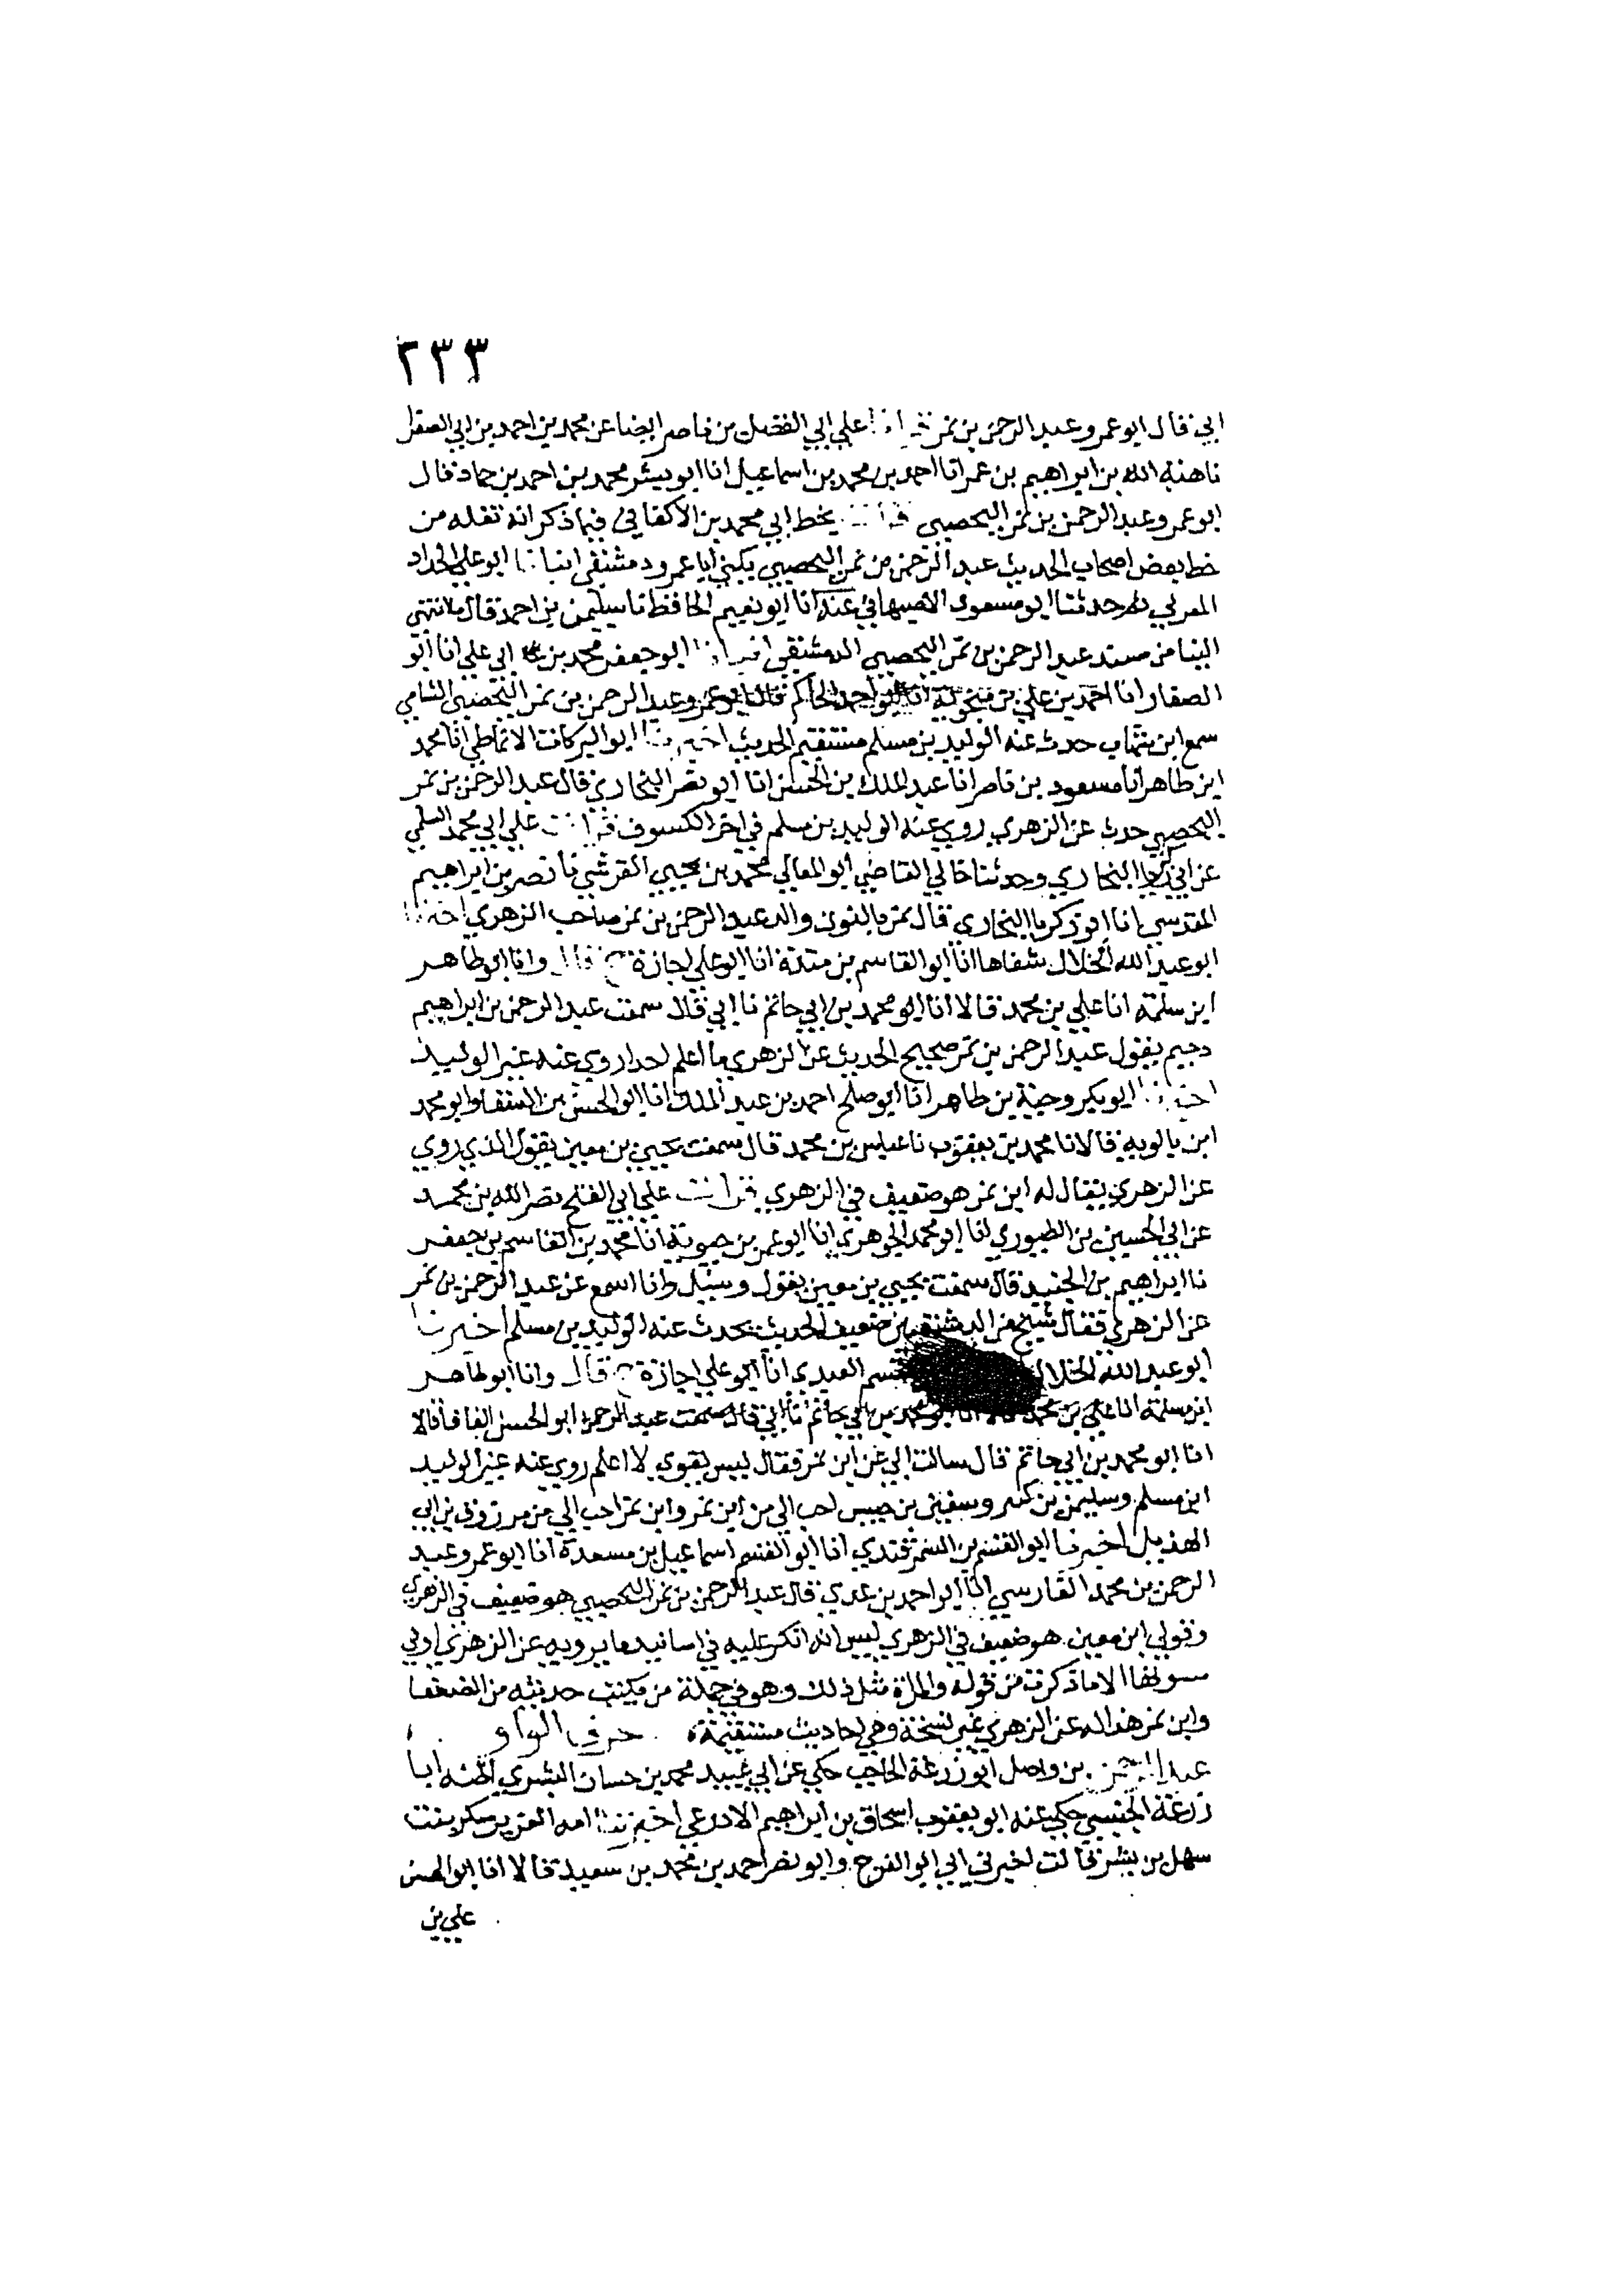 ٢٣٣
ابي قال ابو عمرو عبد الرحمن بن نمر قرانا علي ابي الفضل بن ناصر ايضا عن محمد بن احمد بن ابي الصقر انا
نا هبة الله بن ابراهيم بن عمر انا احمد بن محمد بن اسماعيل انا ابو بشر محمد بن احمد بن حماد قال
ابو عمرو عبد الرحمن بن نمر اليحصبي قرات بخط ابي محمد بن الاكفاني فيما ذكر انه نقله من
خط بعض اصحاب الحديث عبد الرحمن بن نمر اليحصبي يكني ابا عمرو دمشقي انبانا ابو علي الحداد
المقري ثم حدثنا ابو مسعود الاصبهاني عنه انا ابو نعيم الحافظ نا سليمن بن احمد قال ما انتهي
الينا من مسند عبد الرحمن بن نمر اليحصبي الدمشقي اخبرنا ابو جعفر محمد بن ابي علي انا ابو
الصفار انا احمد بن علي بن منجويه انا ابو احمد الحاكم قال ابو عمرو عبد الرحمن بن نمر اليحصبي الشامي
سمع ابن شهاب حدث عنه الوليد بن مسلم مستقيم الحديث اخبرنا ابو البركات الانماطي انا محمد
ابن طاهر انا مسعود بن ناصر انا عبد الملك بن الحسن انا ابو نصر البخاري قال عبد الرحمن بن نمر
اليحصبي حدث عن الزهري روي عنه الوليد بن مسلم في اخر الكسوف قرات علي ابي محمد السلمي
عن ابي زكريا البخاري وحدثنا خالي القاضي ابو المعالي محمد بن يحيي القرشي نا نصر بن ابراهيم
المقدسي انا ابو زكريا البخاري قال نمر بالنون والد عبد الرحمن بن نمر صاحب الزهري اخبرنا
ابو عبد الله الخلال شفاها انا ابو القاسم بن مندة انا ابو علي اجازة ح قال وانا ابو طاهر
ابن سلمة انا علي بن محمد قالا انا ابو محمد بن ابي حاتم نا ابي قال سمعت عبد الرحمن بن ابراهيم
دحيم يقول عبد الرحمن بن نمر صحيح الحديث عن الزهري ما اعلم احدا روي عنه غير الوليد
اخبرنا ابو بكر وجيه بن طاهر انا ابو صلح احمد بن عبد الملك انا ابو الحسن بن السقا وابو محمد
ابن بالويه قالا نا محمد بن يعقوب نا عباس بن محمد قال سمعت يحيي بن معين يقول الذي روي
عن الزهري يقال له ابن نمر هو ضعيف في الزهري قرات علي ابي الفتح نصر الله بن محمد
عن ابي الحسين بن الطيوري انا ابو محمد الجوهري انا ابو عمر بن حيوية انا محمد بن القاسم بن جعفر
نا ابراهيم بن الجنيد قال سمعت يحيي بن معين يقول وسئل وانا اسمع عن عبد الرحمن بن نمر
عن الزهري فقال شيخ من الدمشقيين ضعيف الحديث يحدث عنه الوليد بن مسلم اخبرنا
ابو عبد الله الخلال العبدي انا ابو علي اجازة ح قال وانا ابو طاهر
ابن سلمة انا علي بن محمد قالا انا ابو محمد بن ابي حاتم نا ابي قال سمعت عبد الرحمن ابو الحسن قالا
انا ابو محمد بن ابي حاتم قال سالت ابي عن ابن نمر فقال ليس بقوي لا اعلم روي عنه غير الوليد
ابن مسلم وسليمن بن كثير وسفين بن حسين احب الي من ابن نمر وابن نمر احب الي من مرزوق بن ابي
الهذيل اخبرنا ابو القسم بن السمرقندي انا ابو القسم اسماعيل بن مسعدة انا ابو عمرو عبد
الرحمن بن محمد الفارسي انا ابو احمد بن عدي قال عبد الرحمن بن نمر اليحصبي هو ضعيف في الزهري
وقول ابن معين هو ضعيف في الزهري ليس انه انكر عليه في اسانيد ما يرويه عن الزهري او في
متونها الا ما ذكرت من قوله والمراة مثل ذلك وهو في جملة من يكتب حديثه من الضعفا
وابن نمر هذا له عن الزهري غير نسخة وهي احاديث مستقيمة حرف الواو
عبد الرحمن بن واصل ابو زرعة الحاجب حكي عن ابي عبيد محمد بن حسان البسري اظنه ابا
زرعة الجنبي حكي عنه ابو يعقوب اسحاق بن ابراهيم الادرعي اخبرتنا امه العزيز سكر بنت
سهل بن بشر قالت اخبرني ابي ابو الفرج وابو نصر احمد بن محمد بن سعيد قالا انا ابو الحسن
علي بن